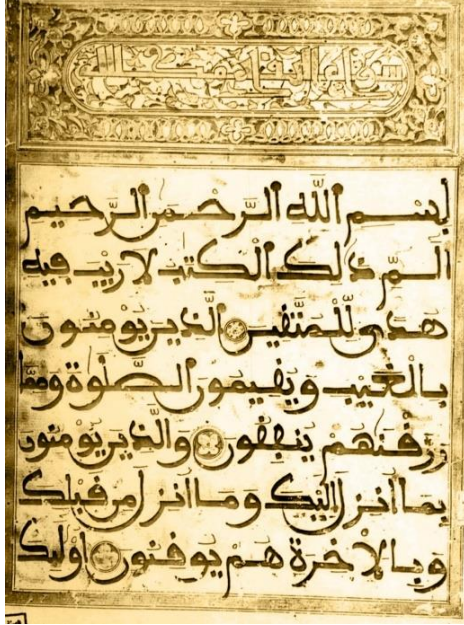 بِسْمِ اللَّهِ الرَّحْمَنِ الرَّحِيمِ
الَمِّ ذَلِكَ الْكِتَبُ لَا رَيْبَ فِيهِ
هُدًى لِّلْمُتَّقِينَ الَّذِينَ يُومِنُونَ
بِالْغَيْبِ وَيُقِيمُونَ الصَّلَوةَ وَمِمَّا
رَزَقْنَهُمْ يُنفِقُونَ وَالَّذِينَ يُومِنُونَ
بِمَا أُنزِلَ إِلَيْكَ وَمَا أُنزِلَ مِن قَبْلِكَ
وَبِالْاخِرَةِ هُمْ يُوقِنُونَ أُوْلَئِكَ